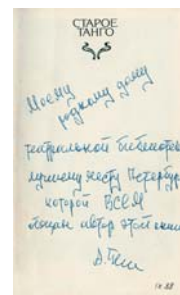 СТАРОЕ
ТАНГО
Моему
родному дому
театральной библиотеке
лучшему месту Петербур
которой ВСЕМ
обязан автор этой книги